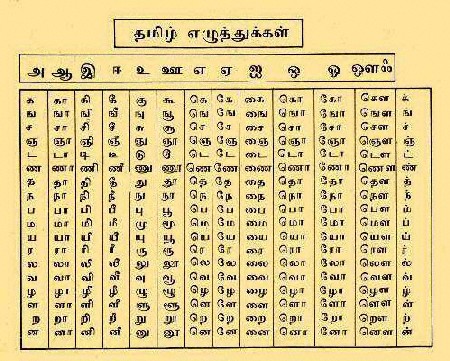 தமிழ் எழுத்துக்கள்
அ ஆ இ ஈ உ ஊ எ ஏ ஐ ஒ ஓ ஔ ஃ
க கா கி கீ கு கூ கெ கே கை கொ கோ கௌ க்
ங ஙா ஙி ஙீ ஙு ஙூ ஙெ ஙே ஙை ஙொ ஙோ ஙௌ ங்
ச சா சி சீ சு சூ செ சே சை சொ சோ சௌ ச்
ஞ ஞா ஞி ஞீ ஞு ஞூ ஞெ ஞே ஞை ஞொ ஞோ ஞௌ ஞ்
ட டா டி டீ டு டூ டெ டே டை டொ டோ டௌ ட்
ண ணா ணி ணீ ணு ணூ ணெ ணே ணை ணொ ணோ ணௌ ண்
த தா தி தீ து தூ தெ தே தை தொ தோ தௌ த்
ந நா நி நீ நு நூ நெ நே நை நொ நோ நௌ ந்
ப பா பி பீ பு பூ பெ பே பை பொ போ பௌ ப்
ம மா மி மீ மு மூ மெ மே மை மொ மோ மௌ ம்
ய யா யி யீ யு யூ யெ யே யை யொ யோ யௌ ய்
ர ரா ரி ரீ ரு ரூ ரெ ரே ரை ரொ ரோ ரௌ ர்
ல லா லி லீ லு லூ லெ லே லை லொ லோ லௌ ல்
வ வா வி வீ வு வூ வெ வே வை வொ வோ வௌ வ்
ழ ழா ழி ழீ ழு ழூ ழெ ழே ழை ழொ ழோ ழௌ ழ்
ள ளா ளி ளீ ளு ளூ ளெ ளே ளை ளொ ளோ ளௌ ள்
ற றா றி றீ று றூ றெ றே றை றொ றோ றௌ ற்
ன னா னி னீ னு னூ னெ னே னை னொ னோ னௌ ன்